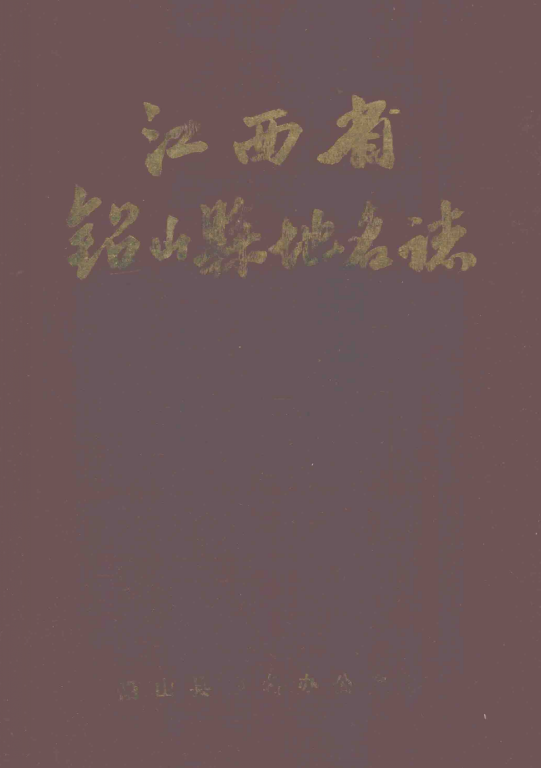 江西省
鉛山縣地名誌
铅山县地名办公室